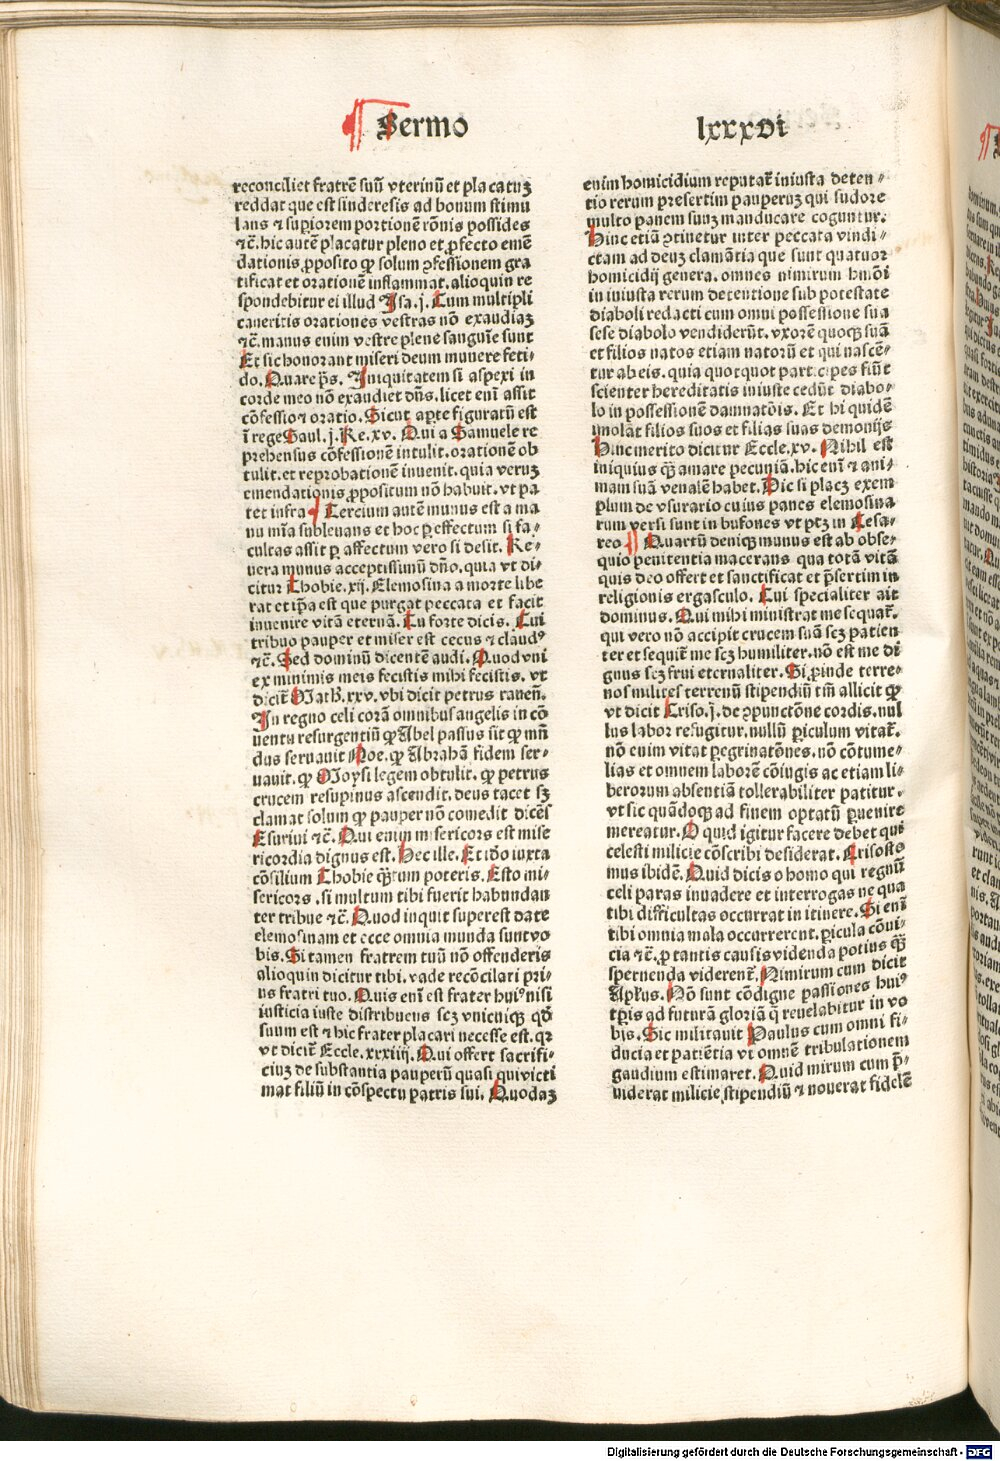 Sermo
lxxxvi
reconciliet fratrē suū vterinū et placatuʒ
reddat que est sinderesis ad bonum stimu
lans ⁊ supiorem portionē rōnis possides
⁊c̄. hic autē placatur pleno et ꝓfecto emē
dationis ꝓposito ꝙ solum ꝯfessionem gra
tificat et orationē inflammat. alioquin re
spondebitur ei illud Isa. j. Cum multipli
caueritis orationes vestras nō exaudiaʒ
⁊c̄. manus enim vestre plene sanguīe sunt
Et sic honorant miseri deum munere feti⸗
do. Quare p̄s. Iniquitatem si aspexi in
corde meo nō exaudiet dn̄s. licet eni assit
cōfessio ⁊ oratio. Sicut aꝑte figuratū est
ī rege Saul. j. Re. xv. Qui a Samuele re
prehensus cōfessionē intulit. orationē ob
tulit. et reprobationē inuenit. quia veruʒ
emendationis ꝓpositum nō habuit. vt pa
tet infra Tercium autē munus est a ma
nu mīa subleuans et hoc ꝑ effectum si fa⸗
cultas assit ꝑ affectum vero si desit. Re⸗
uera munus acceptissimū dn̄o. quia vt di
citur Thobie. xij. Elemosina a morte libe
rat et ip̄a est que purgat peccata et facit
inuenire vitā eternā. Tu forte dicis. Cui
tribuo pauper et miser est cecus ⁊ claudꝰ
⁊c̄. Sed dominū dicentē audi. Quod vni
ex minimis meis fecistis mihi fecistis. vt
dicit̄ Math. xxv. vbi dicit petrus rauen̄.
In regno celi corā omnibus angelis in cō
uentu resurgentiū ꝙ Abel passus sit ꝙ mū
dus seruauit Noe. ꝙ Abrahā fidem ser⸗
uauit. ꝙ Moysi legem obtulit. ꝙ petrus
crucem resupinus ascendit. deus tacet sʒ
clamat solum ꝙ pauper nō comedit dicēs
Esuriui ⁊c̄. Qui enim misericors est mise
ricordia dignus est. Hec ille. Et iō iuxta
cōsilium Thobie qꝫtum poteris. Esto mi⸗
sericors. si multum tibi fuerit habundan
ter tribue ⁊c̄. Quod inquit superest date
elemosinam et ecce omnia munda sunt vo
bis. Si tamen fratrem tuū nō offenderis
alioquin dicitur tibi. vade recōcilari pri⸗
us fratri tuo. Quis eni est frater huiꝰ nisi
iusticia iuste distribuens scʒ vnicuiqꝫ qd̄
suum est ⁊ hic frater placari necesse est. qꝛ
vt dicit̄ Eccle. xxxiiij. Qui offert sacrifi⸗
ciuʒ de substantia pauperū quasi qui victi
mat filiū in cōspectu patris sui. Quodaʒ
enim homicidium reputat̄ iniusta deten⸗
tio rerum presertim pauperuʒ qui sudore
multo panem suuʒ manducare coguntur.
Hinc etiā ꝯtinetur inter peccata vindi⸗
ctam ad deuʒ clamātia que sunt quatuor
homicidij genera. omnes nimirum hmōi
in iniusta rerum detentione sub potestate
diaboli redacti cum omni possessione sua
sese diabolo vendiderūt. vxorē quoqꝫ suā
et filios natos etiam natorū et qui nascē⸗
tur ab eis. quia quotquot participes fiūt
scienter hereditatis iniuste cedūt diabo⸗
lo in possessionē damnatōis. Et hi quidē
imolāt filios suos et filias suas demonijs
Hinc merito dicitur Eccle. xv. Nihil est
iniquius qꝫ amare pecuniā. hic eni ⁊ ani⸗
mam suā venalē habet. Hic si placʒ exem
plum de vsurario cuius panes elemosina
rum versi sunt in bufones vt ptʒ in Cesa⸗
reo Quartū deniqꝫ munus est ab obse⸗
quio penitentia macerans qua totā vitā
quis deo offert et sanctificat et p̄sertim in
religionis ergasculo. Cui specialiter ait
dominus. Qui mihi ministrat me sequat̄.
qui vero nō accipit crucem suā scʒ patien
ter et sequit̄ me scʒ humiliter. nō est me di
gnus scʒ frui eternaliter. Si ꝓinde terre⸗
nos milites terrenū stipendiū tm̄ allicit ꝙ
vt dicit Criso. j. de ꝯpunctōne cordis. nul
lus labor refugitur. nullū ꝑiculum vitat̄.
nō enim vitat peregrinatōnes. nō cōtume⸗
lias et omnem laborē cōiugis ac etiam li⸗
berorum absentiā tollerabiliter patitur.
vt sic quādoqꝫ ad finem optatū ꝑuenire
mereatur. O quid igitur facere debet qui
celesti milicie cōscribi desiderat. Crisosto
mus ibidē. Quid dicis o homo qui regnū
celi paras inuadere et interrogas ne qua
tibi difficultas occurrat in itinere. Si eni
tibi omnia mala occurrerent. ꝑicula cōui⸗
cia ⁊c̄. ꝓ tantis causis videnda potius qꝫ
spernenda viderent̄. Nimirum cum dicit
Apl̄us. Nō sunt cōdigne passiones huiꝰ
tp̄ris ad futurā gloriā q̄ reuelabitur in vo
bis. Sic militauit Paulus cum omni fi⸗
ducia et patiētia vt omnē tribulationem
gaudium estimaret. Quid mirum cum p̄⸗
uiderat milicie stipendiū ⁊ nouerat fidelē
Digitalisierung gefördert durch die Deutsche Forschungsgemeinschaft - DFG